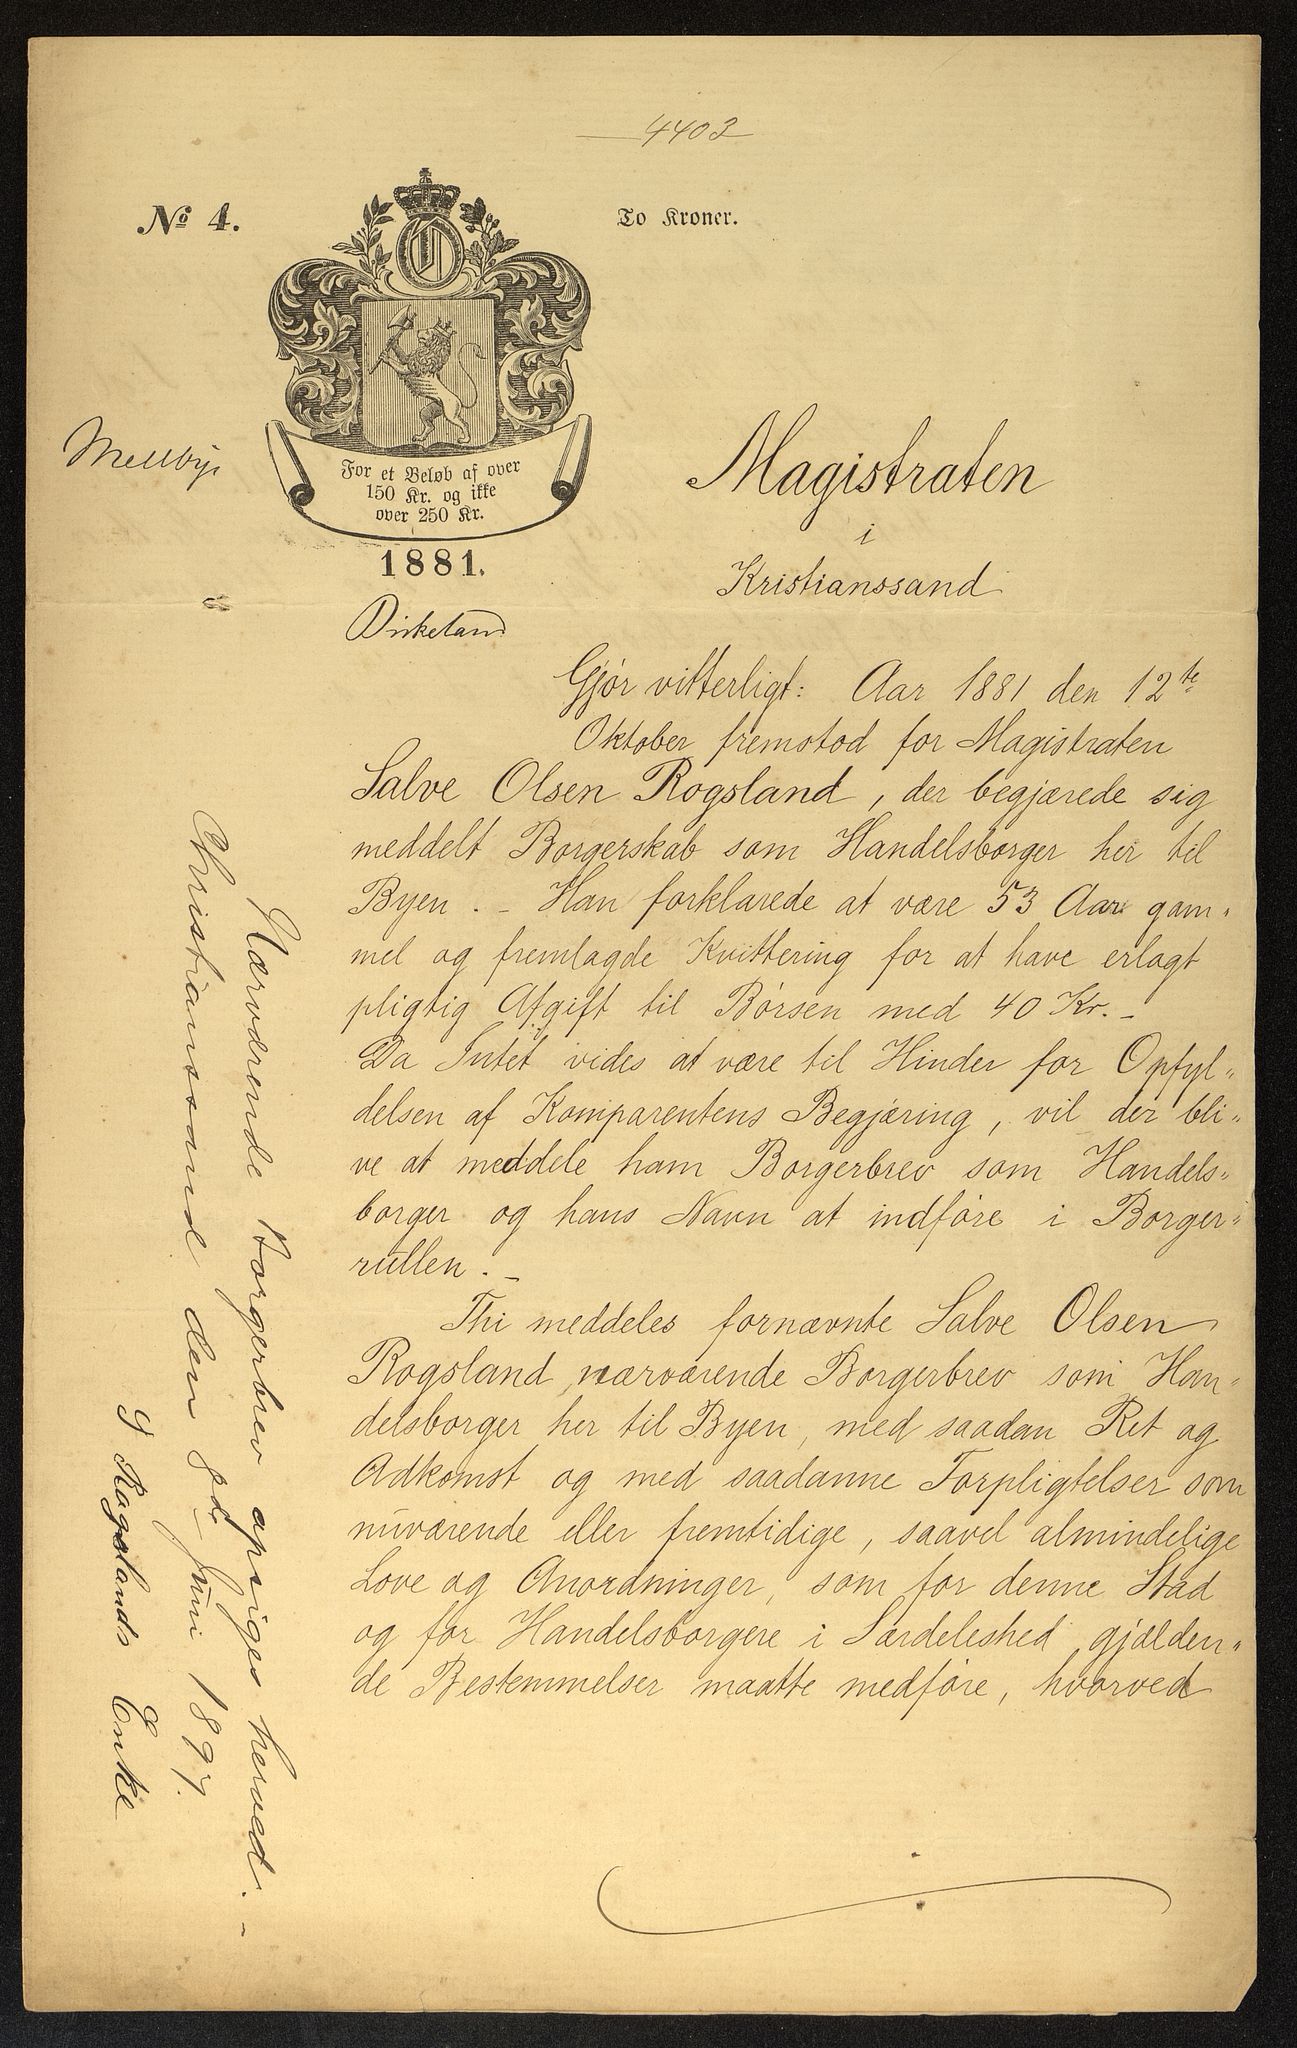 4403
No 4.
To Kroner.
For et Beløb af over
150 Kr. og ikke
over 250 Kr.
1881.
Magistraten
i
Kristianssand
Gjør vitterligt: Aar 1881 den 12te
Oktober fremstod for Magistraten
Salve Olsen Rogsland, der begjærede sig
meddelt Borgerskab som Handelsborger her til
Byen. - Han forklarede at være 53 Aar gam„
mel og fremlagde Kvittering for at have erlagt
pligtig Afgift til Børsen med 40 Kr. -
Da Intet vides at være til Hinder for Opfyl„
delsen af Komparentens Begjæring, vil der bli„
ve at meddele ham Borgerbrev som Handels„
borger og hans Navn at indføre i Borger„
rullen. -
Thi meddeles fornævnte Salve Olsen
Rogsland nærværende Borgerbrev som Han„
delsborger her til Byen, med saadan Ret og
Adkomst og med saadanne Forpligtelser som
nuværende eller fremtidige, saavel almindelige
Love og Anordninger, som for denne Stad
og for Handelsborgere i Særdeleshed gjælden„
de Bestemmelser maatte medføre, hvorved
Nærværende Borgerbrev opsiges herved. -
Christianssand den Juni 1897.
S Rogslands Enke